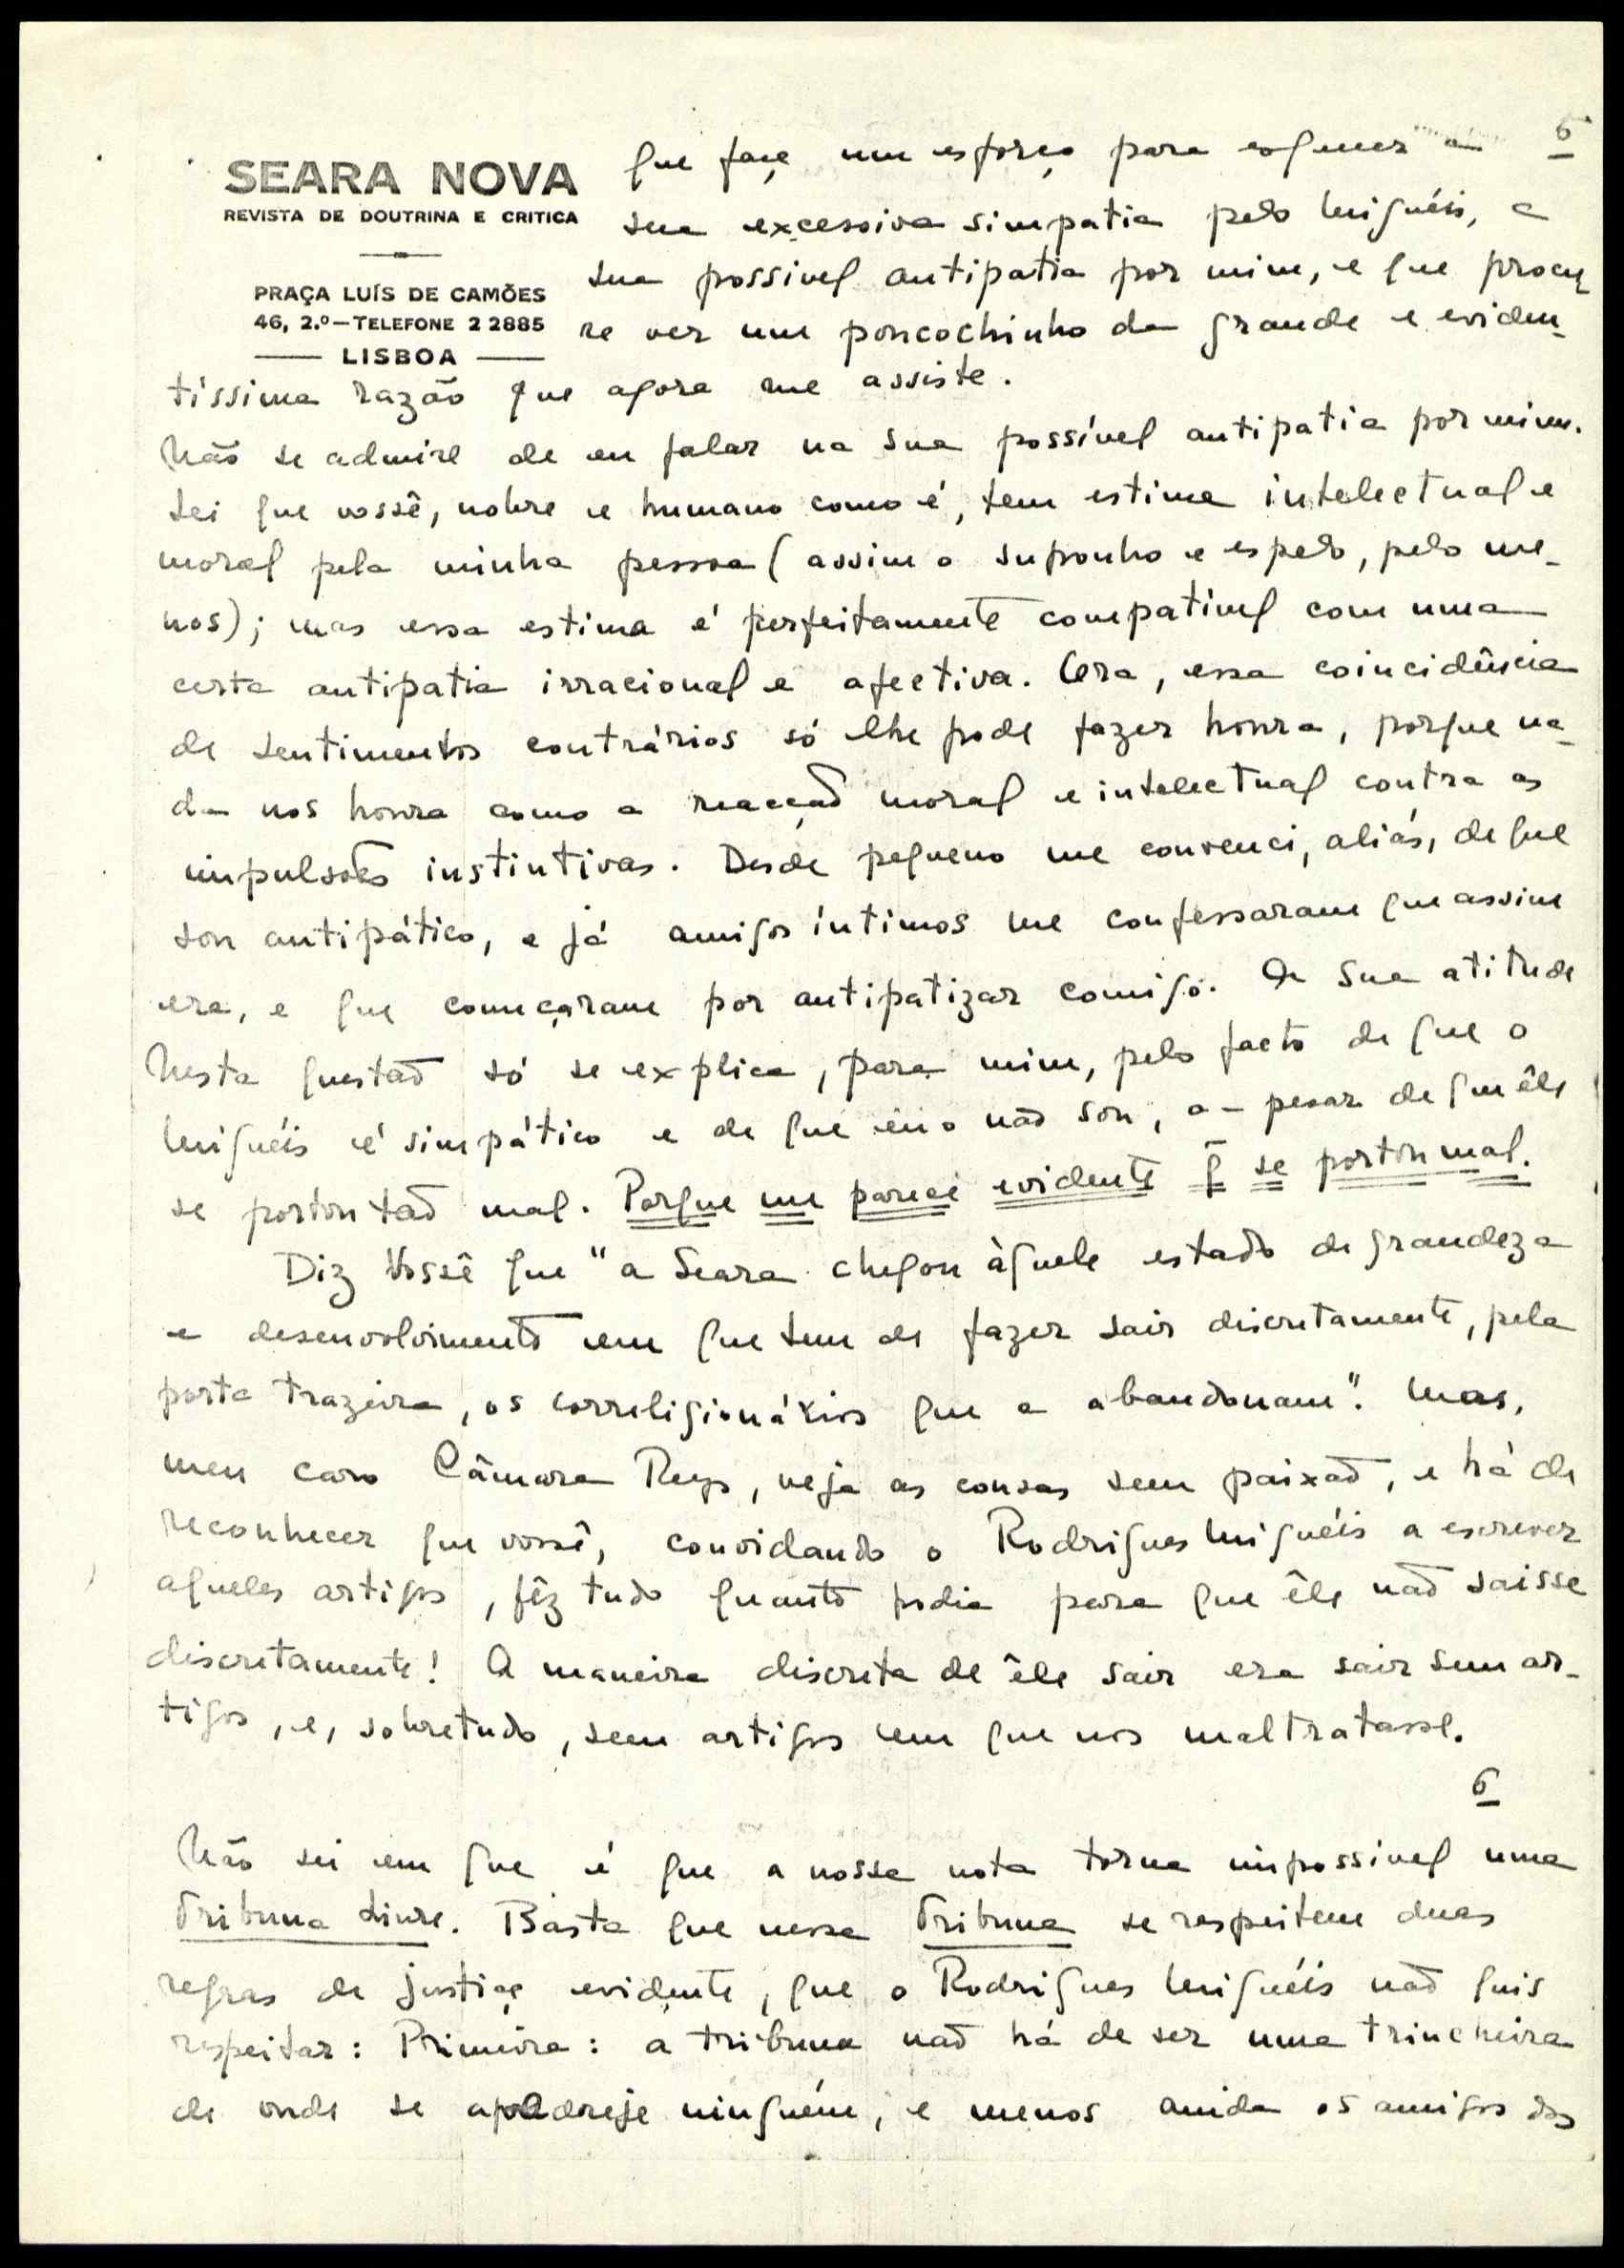 SEARA NOVA
REVISTA DE DOUTRINA E CRITICA
PRAÇA LUÍS DE CAMÕES
46, 2.º—TELEFONE 2 2885
LISBOA
6
que faça um esforço para esquecer a
sua excessiva simpatia pelo Miguéis, a
sua possivel antipatia por mim, e que procu
re ver um poucochinho da grande e eviden-
tíssima razão que agora me assiste.
Não se admire de eu falar na sua possível antipatia por mim.
Sei que vossê, nobre e humano como é, tem estima intelectual e
moral pela minha pessoa (assim o suponho e espero, pelo me-
nos); mas essa estima é perfeitamente compativel com uma
certa antipatia irracional e afectiva. Ora, essa coincidência
de sentimentos contrários só lhe pode fazer honra, porque na-
da nos honra como a reacção moral e intelectual contra as
impulsões instintivas. Desde pequeno me convenci, aliás, de que
sou antipático, e já amigos íntimos me confessaram que assim
era, e que começaram por antipatizar comigo. A sua atitude
nesta questão só se explica, para mim, pelo facto de que o
Miguéis é simpático e de que eu o não sou, a-pesar de que êle
se portou tão mal. Porque me parece evidente q̄ se portou mal.
Diz Vossê que "a Seara chegou àquele estado de grandeza
e desenvolvimento em que tem de fazer sair discretamente, pela
porta trazeira, os correligionários que a abandonam". Mas,
meu caro Câmara Reys, veja as cousas sem paixão, e há de
reconhecer que vossê, convidando o Rodrigues Miguéis a escrever
aqueles artigos, fêz tudo quanto podia para que êle não saisse
discretamente! A maneira discreta de êle sair era sair sem ar-
tigos, e, sobretudo, sem artigos em que nos maltratasse.
6
Não sei em que é que a nossa nota torna impossivel uma
Tribuna Livre. Basta que nessa Tribuna se respeitem duas
regras de justiça evidente, que o Rodrigues Miguéis não quis
respeitar: Primeira: a tribuna não há de ser uma trincheira
de onde se apedreje ninguém, e menos ainda os amigos dos